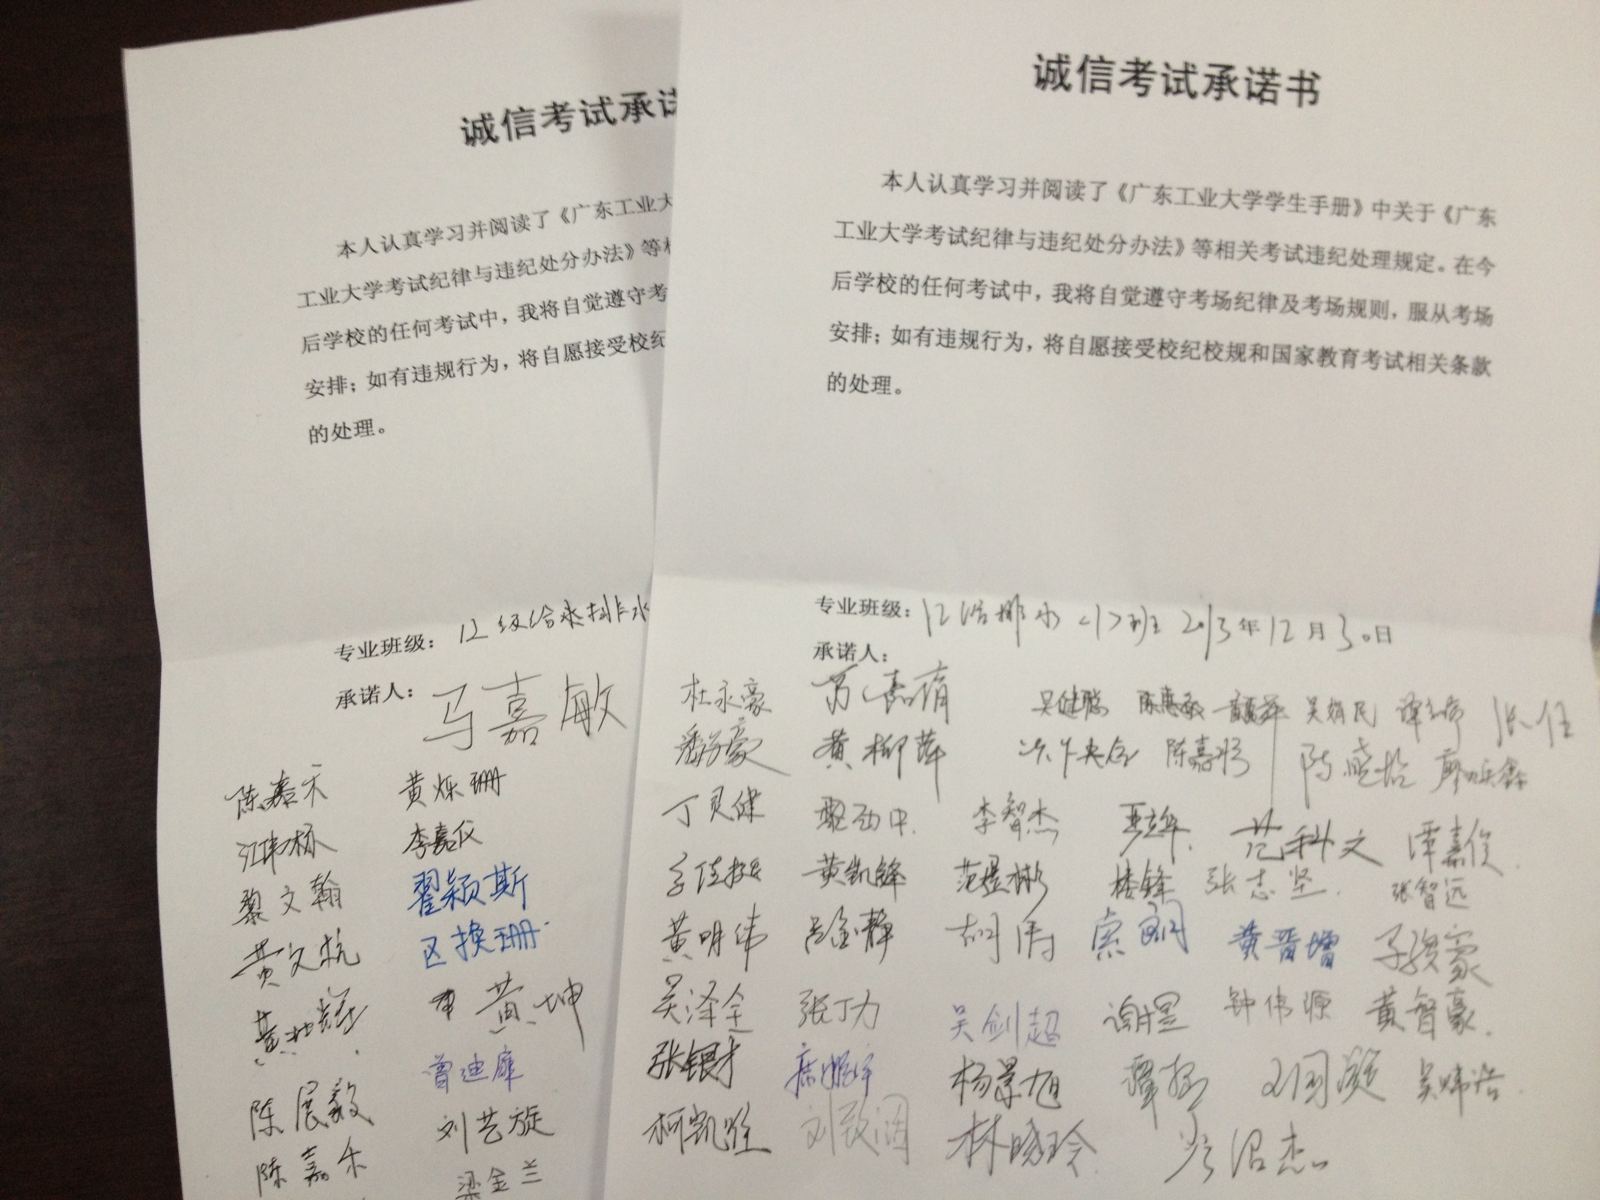 诚信考试承诺
本人认真学习并阅读了《广东工业大
工业大学考试纪律与违纪处分办法》等相
后学校的任何考试中，我将自觉遵守考
安排；如有违规行为，将自愿接受校纪
的处理。
专业班级：12级给水排水
承诺人：马嘉敏
陈嘉禾 黄烁珊
江玮林 李嘉仪
黎文翰 翟颖斯
黄文杭 区换珊
黄坤
陈展毅 曾迪犀
陈嘉乐 刘艺旋
梁金兰
诚信考试承诺书
本人认真学习并阅读了《广东工业大学学生手册》中关于《广东
工业大学考试纪律与违纪处分办法》等相关考试违纪处理规定。在今
后学校的任何考试中，我将自觉遵守考场纪律及考场规则，服从考场
安排；如有违规行为，将自愿接受校纪校规和国家教育考试相关条款
的处理。
专业班级：12给排水<1>班 2013年12月30日
承诺人：
杜永豪 陈惠敏 张任
黄柳萍 陈嘉彤
丁贝健 李智杰 范科文 谭嘉俊
黄凯锋 范煜彬 楼锋 张志坚 张智远
黄明伟 吕金静 黄晋增
吴泽全 张丁力 吴剑超 谢煜 钟伟源 黄智豪
张银才 杨景旭 吴炜浩
柯凯 刘致润 林晓玲